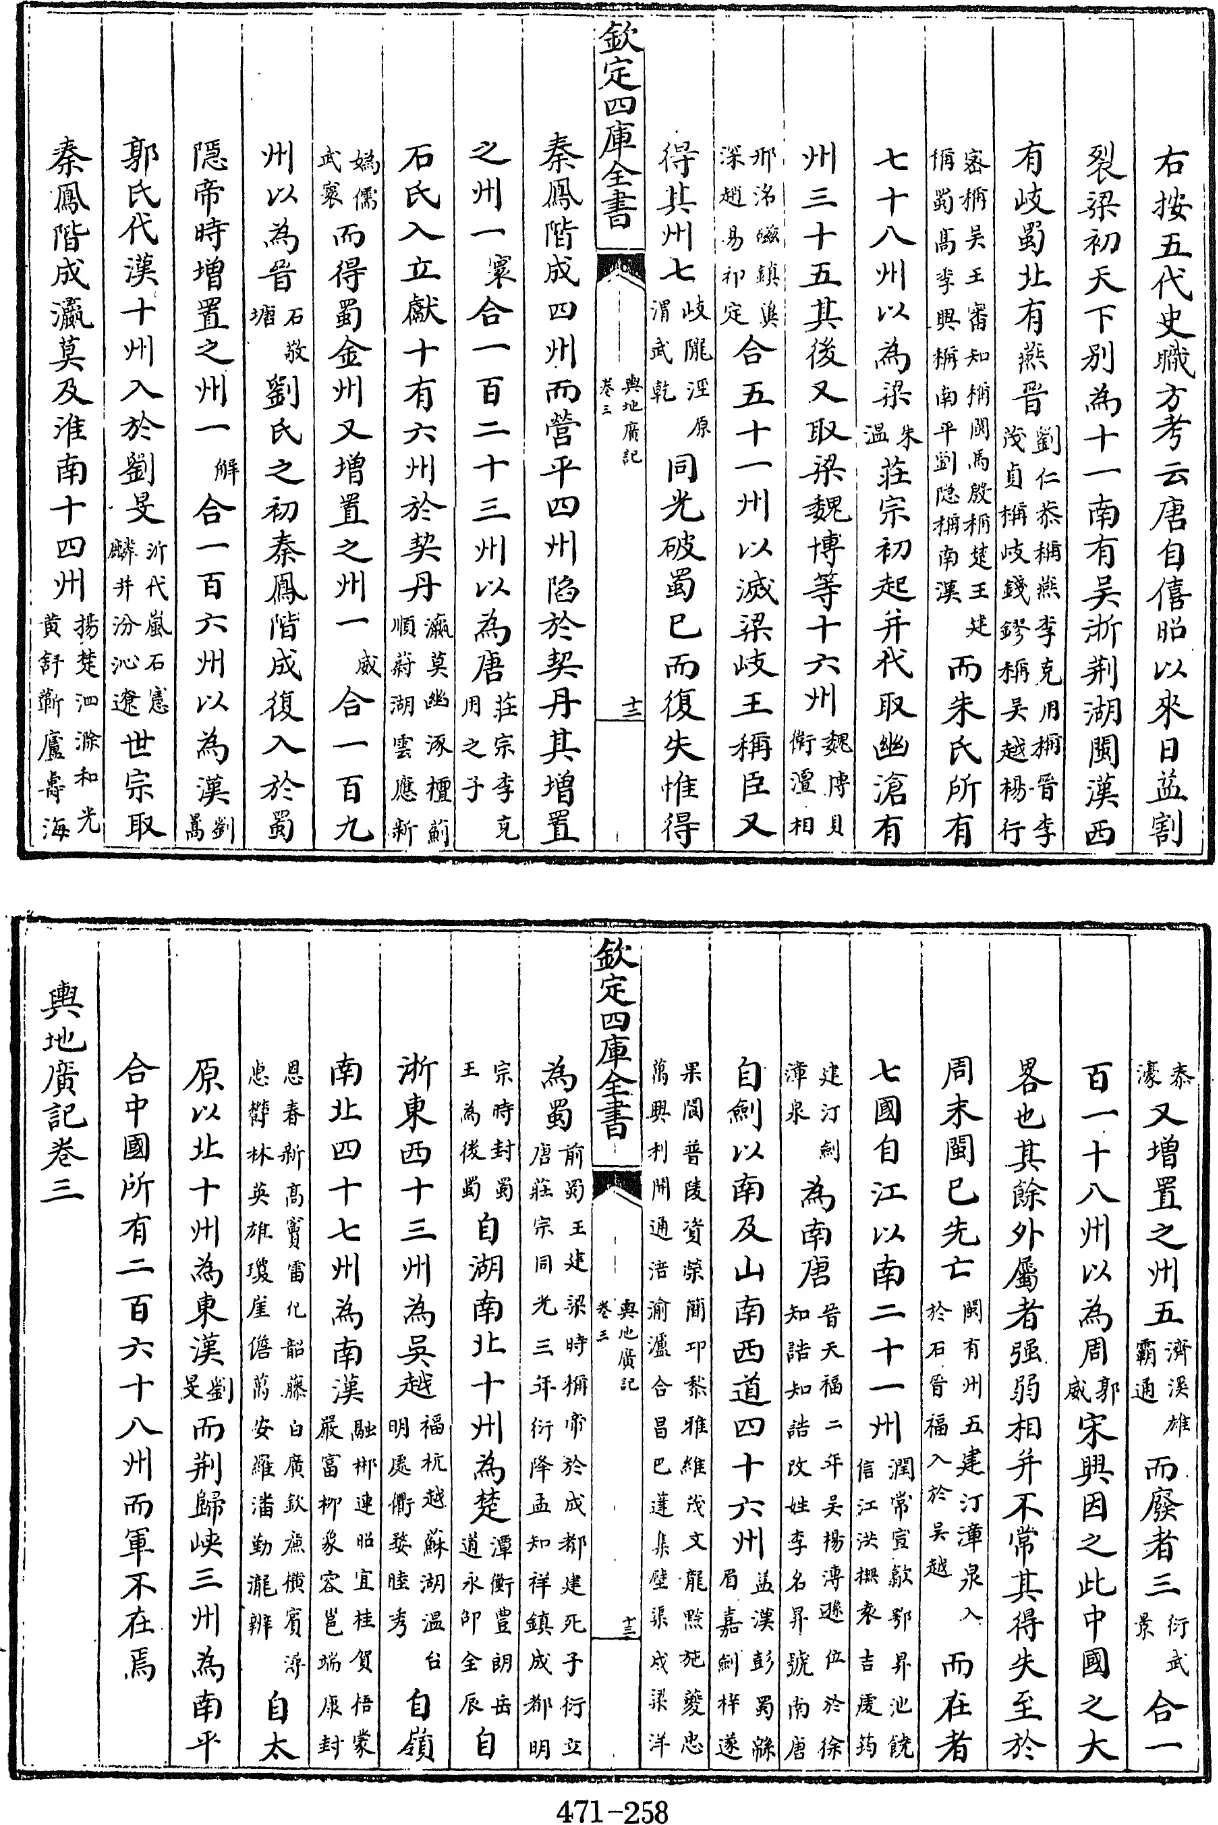 右按五代史職方考云唐自僖昭以來日益割
裂梁初天下别為十一南有吳浙荆湖閩漢西
有岐蜀北有燕晉劉仁恭稱燕李克用稱晉李茂貞稱岐錢鏐稱吳越楊行
密稱吳王審知稱閩馬殷稱楚王建稱蜀髙季興稱南平劉隐稱南漢而朱氏所有
七十八州以為梁朱温莊宗初起并代取幽滄有
州三十五其後又取梁魏博等十六州魏博貝衛澶相
邢洺磁鎮冀深趙易祁定合五十一州以滅梁岐王稱臣又
得其州七岐隴涇原渭武乾同光破蜀已而復失惟得
欽定四庫全書
輿地廣記
卷三
十三
秦鳳階成四州而營平四州陷於契丹其增置
之州一寰合一百二十三州以為唐莊宗李克用之子
石氏入立獻十有六州於契丹瀛莫幽涿檀薊順蔚湖雲應新
媯儒武寰而得蜀金州又增置之州一威合一百九
州以為晉石敬塘劉氏之初秦鳳階成復入於蜀
隱帝時增置之州一解合一百六州以為漢劉暠
郭氏代漢十州入於劉旻沂代嵐石憲麟并汾沁遼世宗取
秦鳳階成瀛莫及淮南十四州揚楚泗滁和光黄舒蘄廬壽海
泰濠又增置之州五濟濱雄霸通而廢者三衍武景合一
百一十八州以為周郭威宋興因之此中國之大
畧也其餘外屬者强弱相并不常其得失至於
周末閩已先亡閩有州五建汀漳泉入於石晉福入於吳越而在者
七國自江以南二十一州潤常宣歙鄂昇池饒信江洪撫袁吉䖍筠
建汀劍漳泉為南唐晉天福二年吳楊溥遜位於徐知誥知誥改姓李名昇號南唐
自劍以南及山南西道四十六州益漢彭蜀緜眉嘉劍梓遂
果閬普陵資榮簡邛黎雅維茂文龍黔施夔忠萬興利開通涪渝瀘合昌巴蓬集壁渠戎梁洋
欽定四庫全書
輿地廣記
卷三
十三
為蜀前蜀王建梁時稱帝於成都建死子衍立唐莊宗同光三年衍降孟知祥鎮成都明
宗時封蜀王為後蜀自湖南北十州為楚潭衡豊朗岳道永卲全辰自
浙東西十三州為吳越福杭越蘇湖温台明處衢婺睦秀自嶺
南北四十七州為南漢融郴連昭宜桂賀梧蒙嚴富柳象容邕端康封
恩春新高竇雷化韶藤白廣欽㢘横賓潯惠欝林英雄瓊崖儋萬安羅潘勤瀧辨自太
原以北十州為東漢劉旻而荆歸峽三州為南平
合中國所有二百六十八州而軍不在焉
輿地廣記卷三
471-258